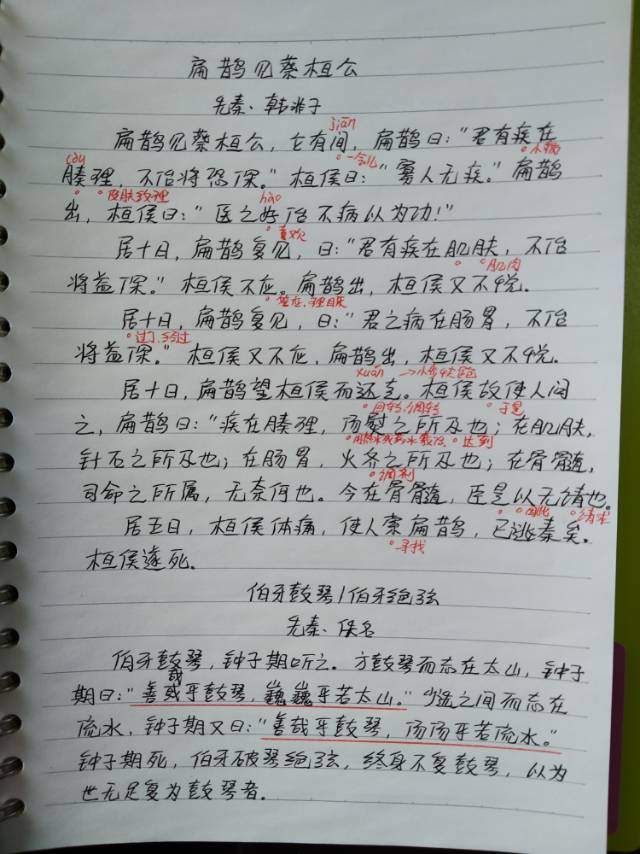 扁鹊见蔡桓公
先秦·韩非子
jiān
扁鹊见蔡桓公，立有间，扁鹊曰："君有疾在
còu 一会儿 小病
腠理，不治将恐深。"桓侯曰："寡人无疾。"扁鹊
皮肤纹理 hào
出，桓侯曰："医之好治不病以为功！"
喜欢
居十日，扁鹊复见，曰："君有疾在肌肤，不治
肌肉
将益深。"桓侯不应。扁鹊出，桓侯又不悦.
答应，理睬
居十日，扁鹊复见，曰："君之病在肠胃，不治
过了，经过
将益深。"桓侯又不应，扁鹊出，桓侯又不悦.
xuán →小步快跑
居十日，扁鹊望桓侯而还走。桓侯故使人问
回转，调转 于是
之，扁鹊曰："疾在腠理，汤熨之所及也；在肌肤，
用热水或药水敷治 达到
针石之所及也；在肠胃，火齐之所及也；在骨髓，
调剂
司命之所属，无奈何也。今在骨髓，臣是以无请也。
因此 请求
居五日，桓侯体痛，使人索扁鹊，已逃秦矣。
寻找
桓侯遂死.
伯牙鼓琴/伯牙绝弦
先秦·佚名
伯牙鼓琴，钟子期听之。方鼓琴而志在太山，钟子
哉
期曰："善哉乎鼓琴，巍巍乎若太山。"少选之间而志在
流水，钟子期又曰："善哉乎鼓琴，汤汤乎若流水。"
钟子期死，伯牙破琴绝弦，终身不复鼓琴，以为
世无足复为鼓琴者.